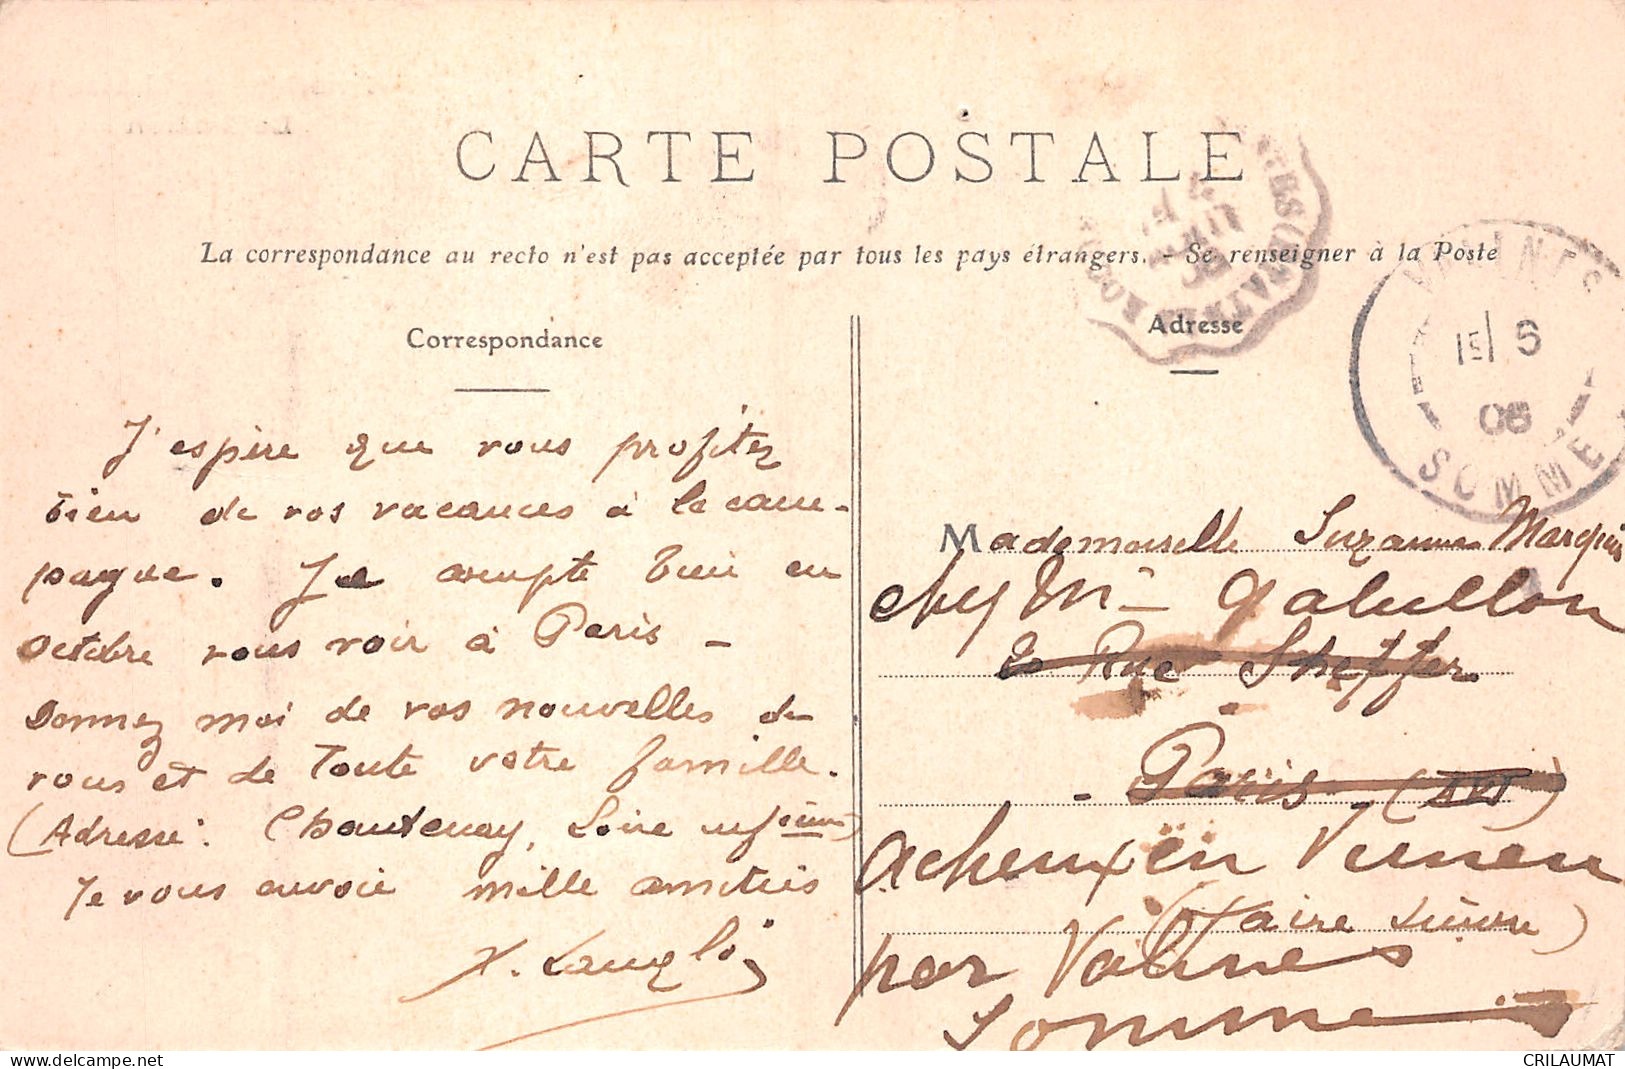 CARTE POSTALE
La correspondance au recto n'est pas acceptée par tous les pays étrangers. - Se renseigner à la Poste
Correspondance
J'espère que vous profitez
bien de vos vacances à la cam-
pagne. Je compte bien en
Octobre vous voir à Paris -
Donnez moi de vos nouvelles de
vous et de toute votre famille.
(Adresse: Chantenay, Loire infeure)
Je vous envoie mille amitiés
Langlois
Adresse
5
06
SOMME
Mademoiselle Suzanne Marquis
chez Mr
20 Rue Scheffer
- Paris - (XVI)
Acheux en Vimeu
(faire suivre)
par Valines
Somme
delcampe.net
CRILAUMAT